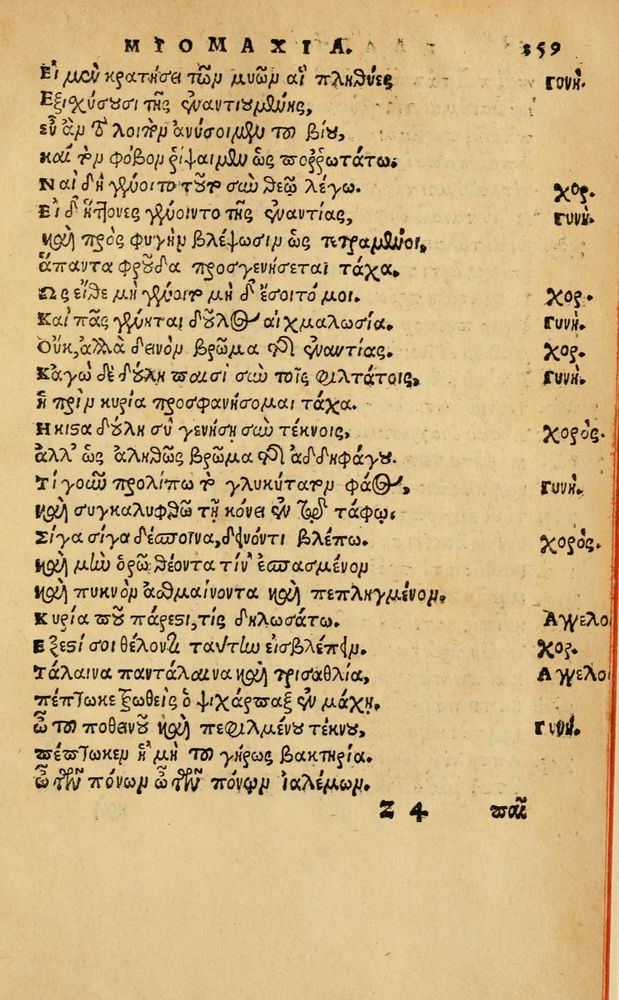 ΜΙΟΜΑΧΙΑ. 359
Εἰ μὲν κρατήσει τῶν μυῶν αἱ πληθύες γυνή.
Ἐξιχύσουσι τῆς ἐναντιουμένης,
εὖ ἂν τὸ λοιπὸν ἀνύσοιμεν τοῦ βίου,
καὶ τὸν φόβον ῥίψαιμεν ὡς ποῤῥωτάτω.
Ναὶ δὴ γένοιτο τοῦτο σὺν θεῷ λέγω. χορ.
Εἰ δ' ἥττονες γένοιντο τῆς ἐναντίας, γυνή.
καὶ πρὸς φυγὴν βλέψωσιν ὡς τετραμμένοι,
ἅπαντα φροῦδα προσγενήσεται τάχα.
Ὡς εἴθε μὴ γένοιτο μὴ δ' ἔσοιτό μοι. χορ.
Καὶ πᾶς γένηται δοῦλος αἰχμαλωσία. γυνή.
Οὐκ, ἀλλὰ δεινὸν βρῶμα τῆς ἐναντίας. χορ.
Κἀγὼ δὲ δούλη παισὶ σὺν τοῖς φιλτάτοις, γυνή.
ἡ πρὶν κυρία προσφανήσομαι τάχα.
Ηκιστα δούλη σὺ γενήσῃ σὺν τέκνοις, χορός.
ἀλλ' ὡς ἀληθῶς βρῶμα τῆς ἀδδηφάγου.
Τί γοῦν προλίπω τὸ γλυκύτατον φάος, γυνή.
καὶ συγκαλυφθῶ τῇ κόνει ἐν τῷ τάφῳ;
Σίγα σίγα δέσποινα, δεινόν τι βλέπω. χορός.
καὶ μὴν ὁρῶ θέοντα τίν' ἐσπασμένον
καὶ πυκνὸν ἀσθμαίνοντα καὶ πεπληγμένον.
Κυρία ποῦ πάρεστι, τίς δηλωσάτω. Ἄγγελο
Ἔξεστί σοι θέλοντι ταύτην εἰσβλέπειν. χορ.
Τάλαινα παντάλαινα καὶ τρισαθλία, Ἄγγελο
πέπτωκε ξωθεὶς ὁ ψιχάρπαξ ἐν μάχῃ.
ὦ τοῦ ποθεινοῦ καὶ πεφιλμένου τέκνου, γυνή.
πέπτωκεν ἡ μὴ τοῦ γήρως βακτηρία.
ὦ τῶν πόνων ὦ τῶν πόνων ἰαλέμων.
Z 4 παῖ